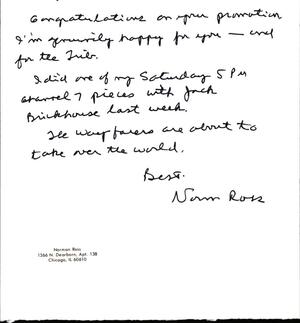 Congratulations on your promotion
I'm genuinely happy for you — and
for the Trib.
I did one of my Saturday 5 PM
Channel 7 pieces with Jack
Brickhouse last week.
The Wayfarers are about to
take over the world.
Best.
Norm Ross
Norman Ross
1366 N. Dearborn, Apt. 13B
Chicago, IL 60610